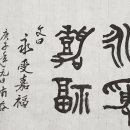 永受
嘉福
文曰
永受嘉福
庚子年元日